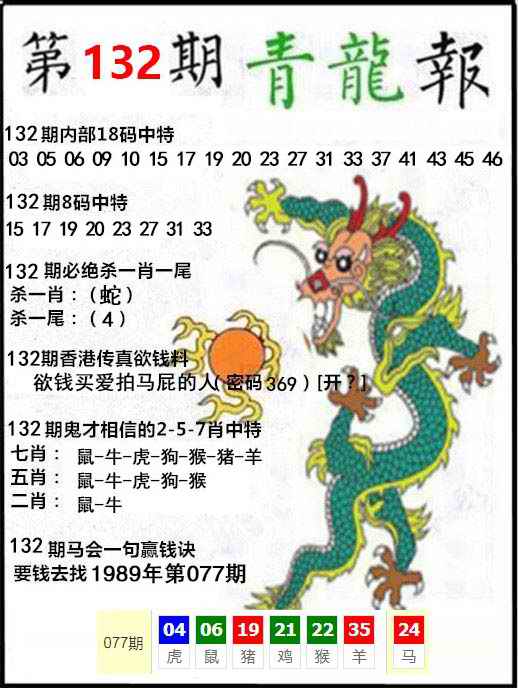 第132期青龍報
132期内部18码中特
03 05 06 09 10 15 17 19 20 23 27 31 33 37 41 43 45 46
132期8码中特
15 17 19 20 23 27 31 33
132期必绝杀一肖一尾
杀一肖：（蛇）
杀一尾：（4）
132期香港传真欲钱料
欲钱买爱拍马屁的人（密码369）[开？]
132期鬼才相信的2-5-7肖中特
七肖： 鼠-牛-虎-狗-猴-猪-羊
五肖： 鼠-牛-虎-狗-猴
二肖： 鼠-牛
132期马会一句赢钱诀
要钱去找1989年第077期
077期 04 06 19 21 22 35 24
虎 鼠 猪 鸡 猴 羊 马